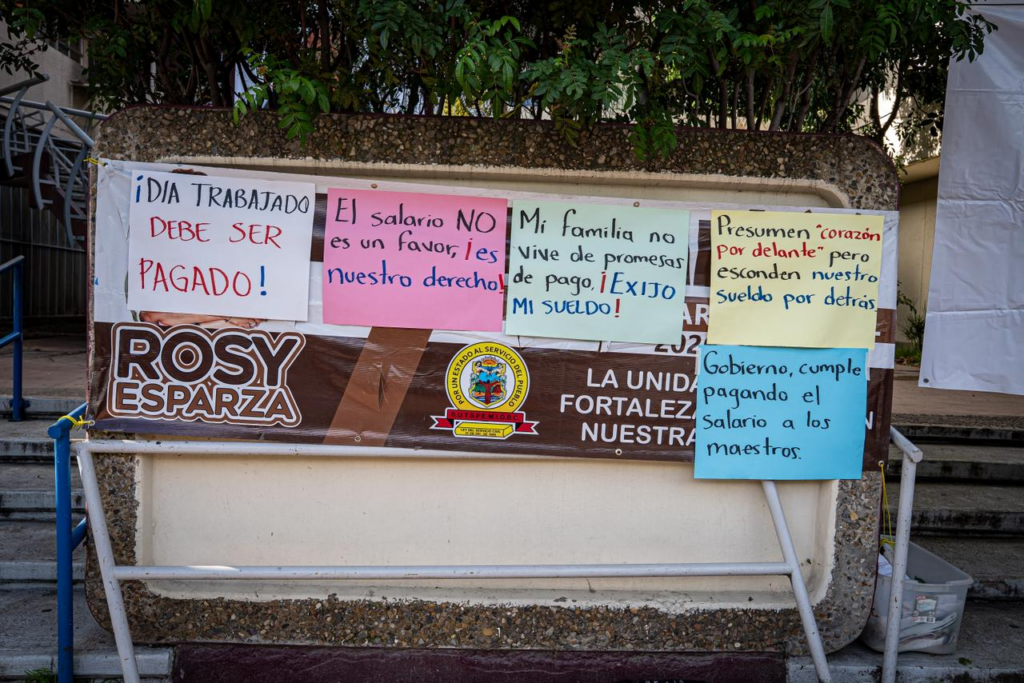 ¡DIA TRABAJADO
DEBE SER
PAGADO!
El salario NO
es un favor, ¡es
nuestro derecho!
Mi familia no
vive de promesas
de pago. ¡EXIJO
MI SUELDO!
Presumen "corazón
por delante" pero
esconden nuestro
sueldo por detrás
Gobierno, cumple
pagando el
salario a los
maestros.
ROSY
ESPARZA
POR UN ESTADO AL SERVICIO DEL PUEBLO
LA UNIDA
FORTALEZA
NUESTRA